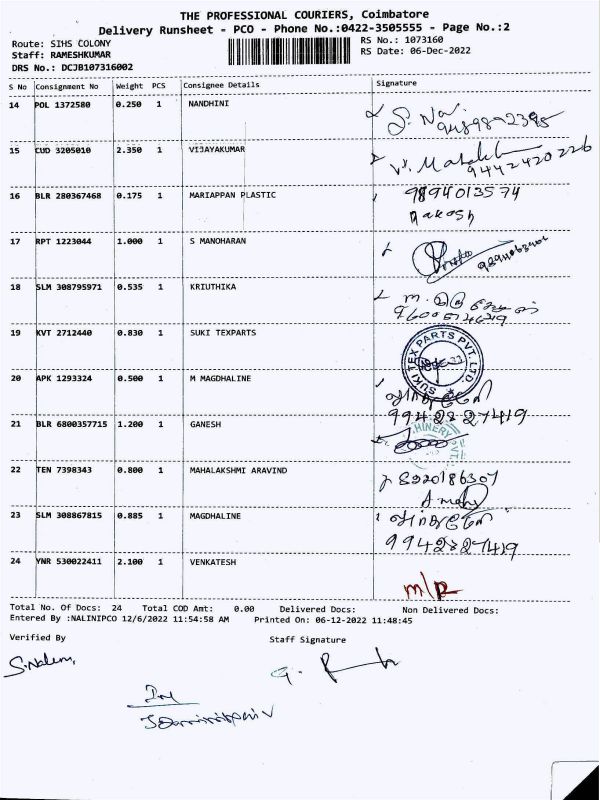 THE PROFESSIONAL COURIERS, Coimbatore
Delivery Runsheet - PCO - Phone No.:0422-3505555 - Page No.:2
Route: SIHS COLONY
Staff: RAMESHKUMAR
DRS No.: DCJB107316002
RS No.: 1073160
RS Date: 06-Dec-2022
S No Consignment No Weight PCS Consignee Details Signature
14 POL 1372580 0.250 1 NANDHINI
9489892395
15 CUD 3205010 2.350 1 VIJAYAKUMAR
9442420226
16 BLR 280367468 0.175 1 MARIAPPAN PLASTIC 9894013574
17 RPT 1223044 1.000 1 S MANOHARAN
18 SLM 308795971 0.535 1 KRIUTHIKA
19 KVT 2712440 0.830 1 SUKI TEXPARTS
SUKI TEX PARTS PVT. LTD
20 APK 1293324 0.500 1 M MAGDHALINE
9942827419
21 BLR 6800357715 1.200 1 GANESH
22 TEN 7398343 0.800 1 MAHALAKSHMI ARAVIND 8220186307
23 SLM 308867815 0.885 1 MAGDHALINE
9942827419
24 YNR 530022411 2.100 1 VENKATESH
Total No. Of Docs: 24 Total COD Amt: 0.00 Delivered Docs: Non Delivered Docs:
Entered By :NALINIPCO 12/6/2022 11:54:58 AM Printed On: 06-12-2022 11:48:45
Verified By Staff Signature
S.Nalini